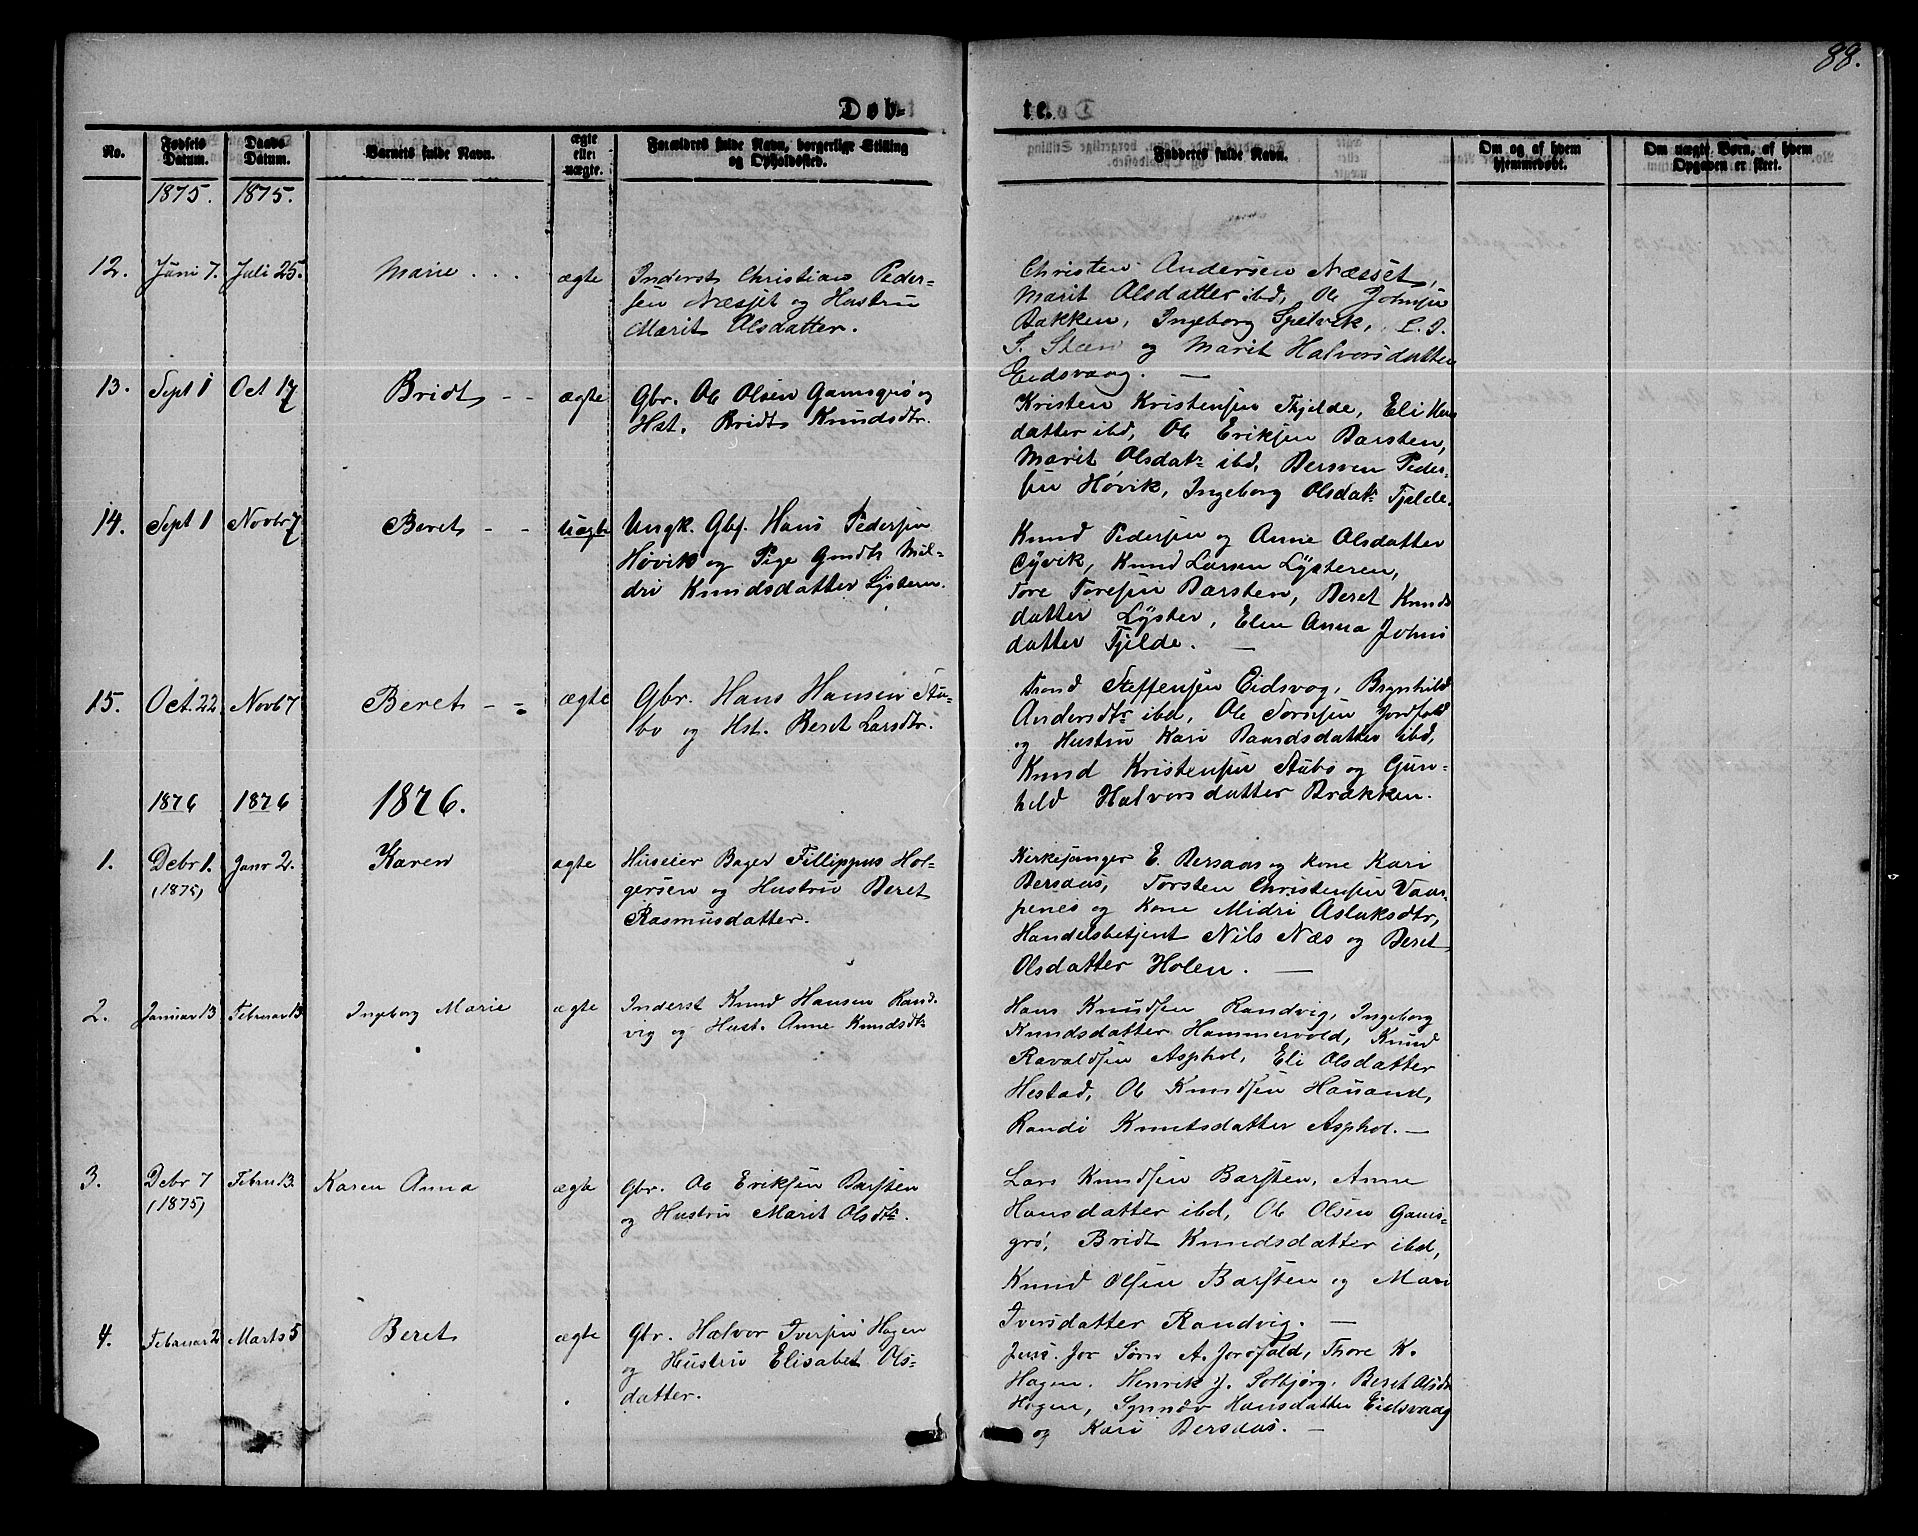 88.
Døb-
te.
No.
Fødsels Datum.
Daabs Datum.
Barnets fulde Navn.
ægte eller uægte.
Forældres fulde Navn, borgerlige Stilling og Opholdssted.
Faddernes fulde Navn.
Om og af hvem hjemmedøbt.
Om uægte Børn, af hvem Opgaven er skeet.
1875. 1875.
12. Juni 7. Juli 25. Marie . . . ægte
Inderst Christian Peder-
sen Næsset og Hustru
Marit Olsdatter.
Christen Andersen Næsset,
Marit Olsdatter ibd, Ole Johnsen
Bakken, Ingeborg Sjelvik, L. J.
T. Stæn og Marit Halvorsdatter
Eidsvaag. —
13. Sept 1 Oct 17 Bridt - - ægte
Gbr. Ole Olsen Gamsgrø og
Hst. Bridt Knudsdtr.
Kristen Kristensen Tkjelde, Eli
datter ibd, Ole Eriksen Barsten,
Marit Olsdatr ibd, Bersven Peder-
sen Høvik, Ingeborg Olsdatr Tjelde.
14. Sept 1 Novbr 7 Beret - - uægte
Ungk. Gbs. Hans Pedersen
Høvik og Pige Gmdtr Mil-
dri Knudsdatter Lysteren.
Knud Pedersen og Anne Olsdatter
Gyvik, Knud Larsen Lysteren,
Tore Toresen Barsten, Beret Knuds
datter Lyster, Elen Anna Johns
datter Tjelde. —
15. Oct. 22 Novb 7 Beret - - ægte
Gbr. Hans Hansen Stu-
bo og Hst. Beret Larsdtr.
Trond Steffensen Eidsvog, Brynhild
Andersdtr ibd, Ole Jornsen Jordfald
og Hustru Kari Baardsdatter ibd,
Knud Kristensen Stubo og Gun-
hild Halvorsdatter Brakken.
1876 1876 1876.
1. Debr 1. Janr 2. Karen ægte
(1875)
Huseier Bager Fillippus Hol-
gersen og Hustru Beret
Rasmusdatter.
Kirkesanger E. Bersaas og Kone Kari
Bersaas, Torsten Christensen Vaar-
penes og Kone Midri Aslaksdtr,
Handelsbetjent Nils Næs og Beret
Olsdatter Holen. —
2. Januar 13 Februar 13 Ingeborg Marie ægte
Inderst Knud Hansen Rand-
vig og Hust. Anne Knudsdtr
Hans Knudsen Randvig, Ingeborg
Knudsdatter Hammervold, Knud
Ravaldsen Asphol, Eli Olsdatter
Hestad, Ole Knudsen Hauand,
Randi Knutsdatter Asphol. —
3. Debr 7 Febru 13. Karen Anna ægte
(1875)
Gbr. Ole Eriksen Barsten
og Hustru Marit Olsdtr.
Lars Knudsen Barsten, Anne
Hansdatter ibd, Ole Olsen Gams-
grø, Bridt Knudsdatter ibd,
Knud Olsen Barsten og Mari
Iversdatter Randvig. —
4. Februar 2 Marts 5 Beret ægte
Gbr. Halvor Iversen Hagen
og Hustru Elisabet Ols-
datter.
Jens. Jor Sørn A. Jordfald, Thore K.
Hagen, Henrik J. Solbjørg, Beret Olsdr
Hagen, Synnøv Hansdatter Eidsvaag
og Kari Bersaas. —